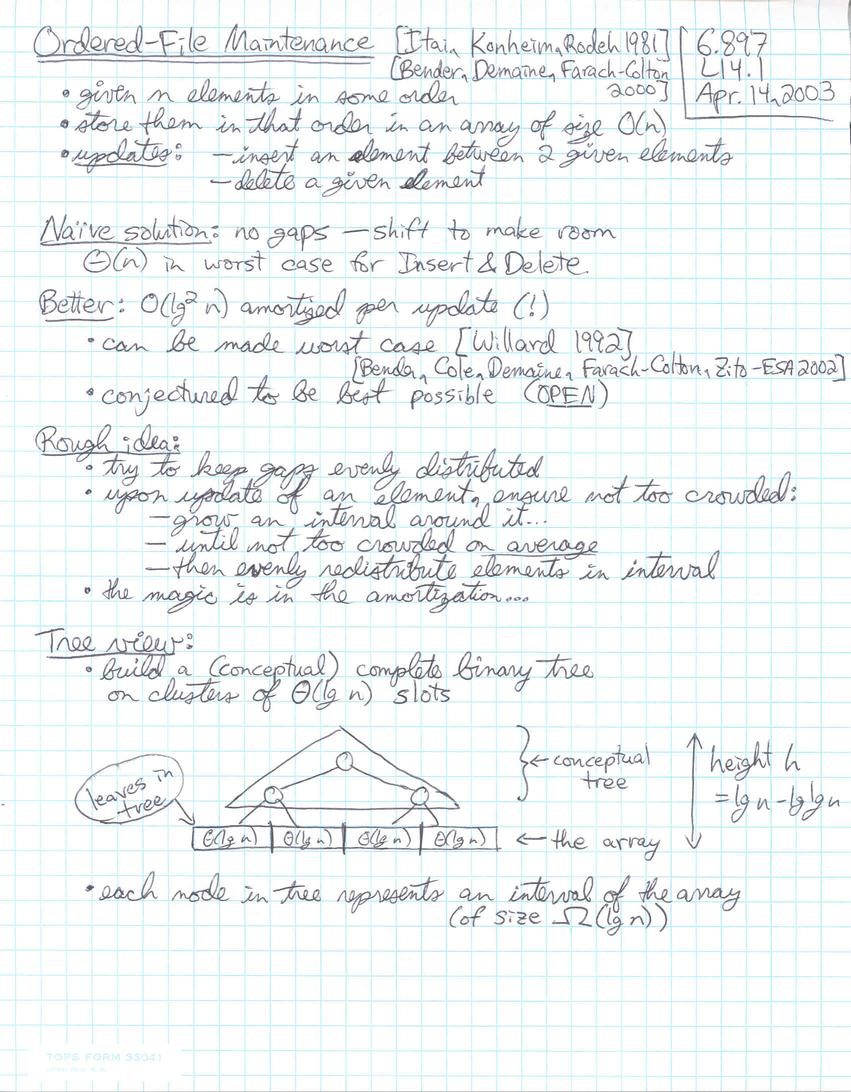 Ordered-File Maintenance [Itai, Konheim, Rodeh 1981]
[Bender, Demaine, Farach-Colton
2000]
6.897
L14.1
Apr. 14, 2003
• given n elements in some order
• store them in that order in an array of size O(n)
• updates: – insert an element between 2 given elements
– delete a given element
Naïve solution: no gaps – shift to make room
Θ(n) in worst case for Insert & Delete.
Better: O(lg² n) amortized per update (!)
• can be made worst case [Willard 1992]
[Bender, Cole, Demaine, Farach-Colton, Zito – ESA 2002]
• conjectured to be best possible (OPEN)
Rough idea:
• try to keep gaps evenly distributed
• upon update of an element, ensure not too crowded:
– grow an interval around it...
– until not too crowded on average
– then evenly redistribute elements in interval
• the magic is in the amortization...
Tree view:
• build a (conceptual) complete binary tree
on clusters of Θ(lg n) slots
leaves in
tree
← conceptual
tree
height h
= lg n - lg lg n
Θ(lg n) Θ(lg n) Θ(lg n) Θ(lg n) ← the array
• each node in tree represents an interval of the array
(of size Ω(lg n))
TOPS FORM 33041